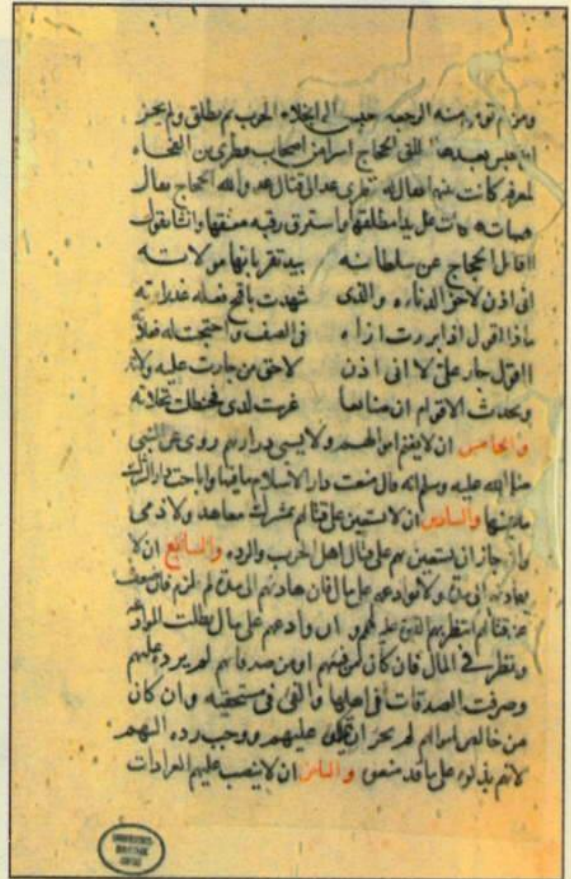 ومن لم تؤمن منه الرجعه حبس الى انجلاء الحرب ثم يطلق ولم يجز
ان يحبس بعدها اطلق الحجاج اسرا من اصحاب قطرى بن الفجاءه
لمعرفه كانت بينهما فقال له قطرى عد الى قتال عدو الله الحجاج فقال
هيهات غل يدا مطلقها واسترق رقبه معتقها وانشا يقول
ااقاتل الحجاج عن سلطانه بيد تقر بانها مولاته
انى اذن لاخو الدناءه والذى شهدت باقبح فعله غدراته
ماذا اقول اذا برزت ازاءه فى الصف واحتجت له فعلاته
ااقول جار على لا انى اذن لاحق من جارت عليه ولاته
ويحدث الاقوام ان صنائعا غرست لدى فحنظلت نخلاته
والخامس ان لا يغنم اموالهم ولا يسبى ذراريهم روى عن النبى
صلى الله عليه وسلم انه قال منعت دار الاسلام ما فيها واباحت دار الشرك
ما فيها والسادس ان لا يستعين على قتالهم بمشرك معاهد ولا ذمى
وان جاز ان يستعين بهم على قتال اهل الحرب والرده والسابع ان لا
يهادنهم الى مدة ولا يوادعهم على مال فان هادنهم الى مدة لم يلزم فان ضعف
عن قتالهم انتظر بهم القوة عليهم وان وادعهم على مال بطلت الموادعه
ونظر فى المال فان كان من فيئهم او من صدقاتهم لم يرده عليهم
وصرفت الصدقات فى اهلها والفئ فى مستحقيه وان كان
من خالص اموالهم لم يجز ان عليهم ووجب رده اليهم
لانهم بذلوه على ما قد منعوا والثامن ان لا ينصب عليهم العرادات